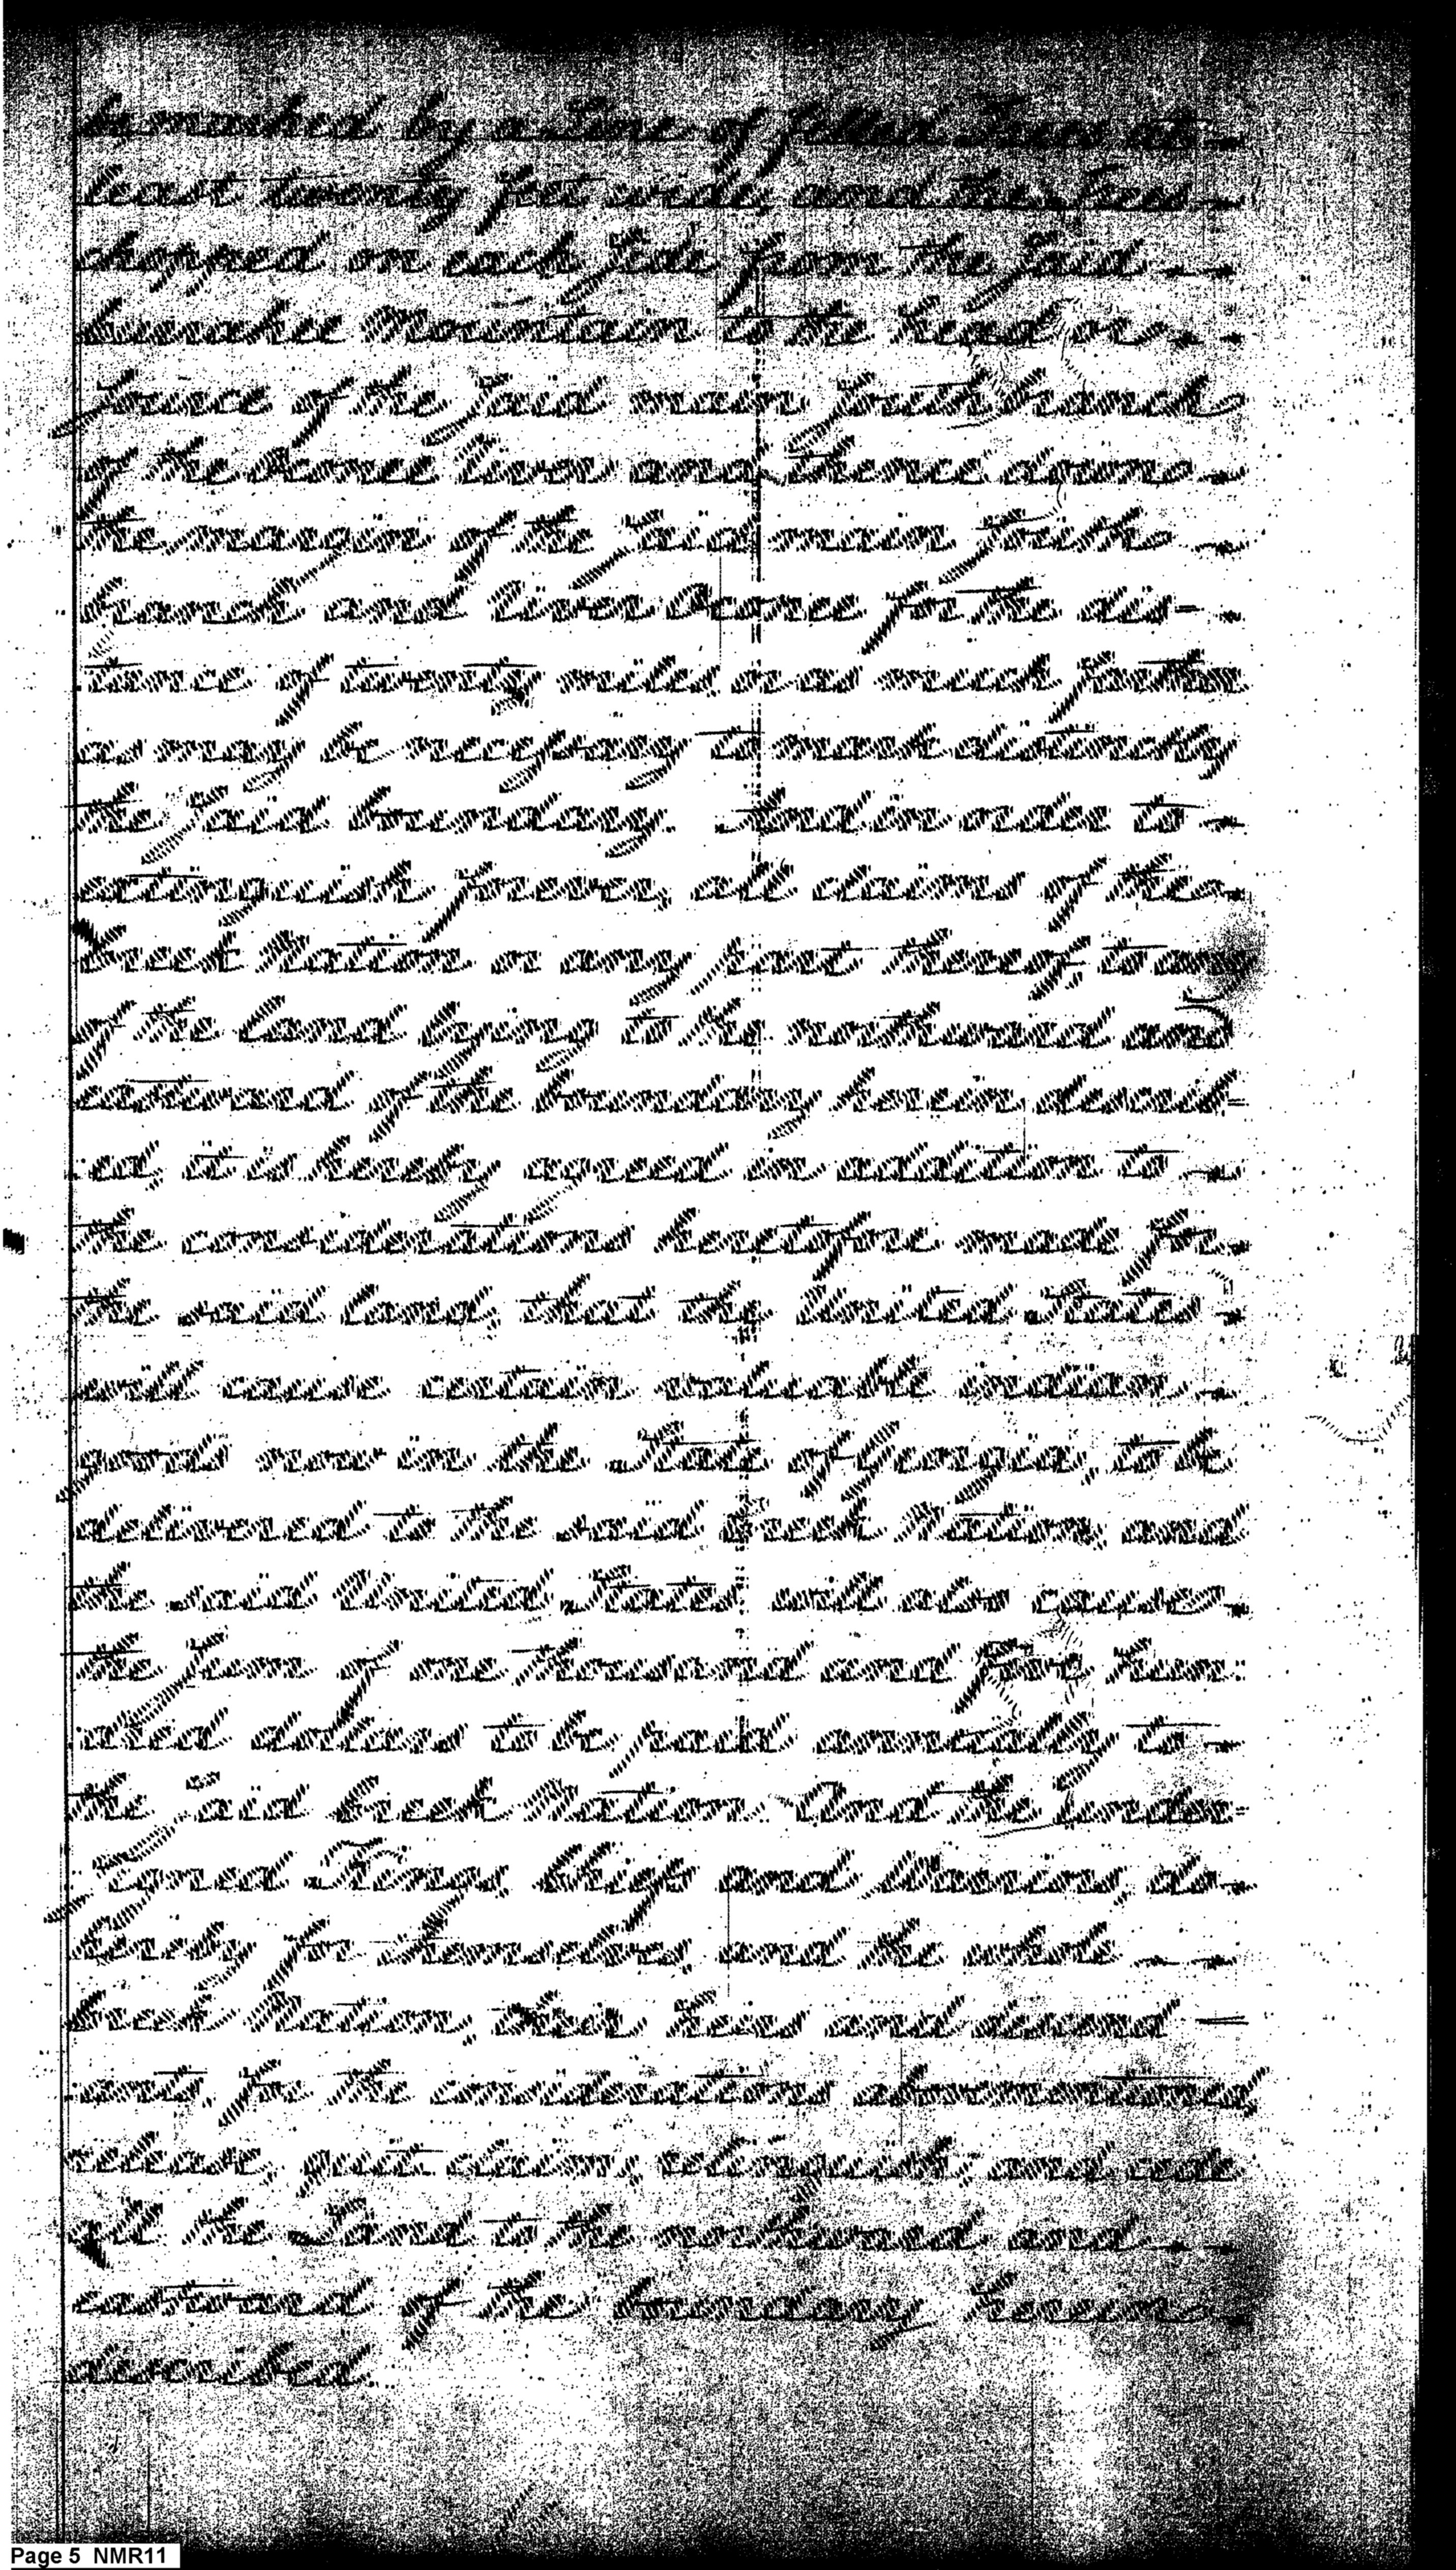 be marked by a Line of felled Trees at
least twenty feet wide, and the Trees
chopped on each Side from the Said
Currahee Mountain to the head or
Source of the Said main South branch
of the Oconee River and thence down
the margin of the Said main South
branch and River Oconee for the dis-
tance of twenty miles or as much farther
as may be necessary to mark distinctly
the Said boundary. And in order to
extinguish forever, all claims of the
Creek Nation or any part thereof, to any
of the Land lying to the northward and
eastward of the boundary herein describ=
:ed, it is hereby agreed in addition to
the considerations heretofore made for
the said Land, that the United States
will cause certain valuable indian
goods now in the State of Georgia, to be
delivered to the said Creek Nation, and
the said United States will also cause
the Sum of one thousand and five hun:
:dred dollars to be paid annually to
the Said Creek Nation. And the under=
Signed Kings, Chiefs and Warriors, do
hereby for themselves, and the whole
Creek Nation, their heirs and descend
:ants, for the considerations abovementioned,
release, quit-claim, relinquish, and cede
all the Land to the northward and
eastward of the boundary herein
described.
Page 5 NMR11